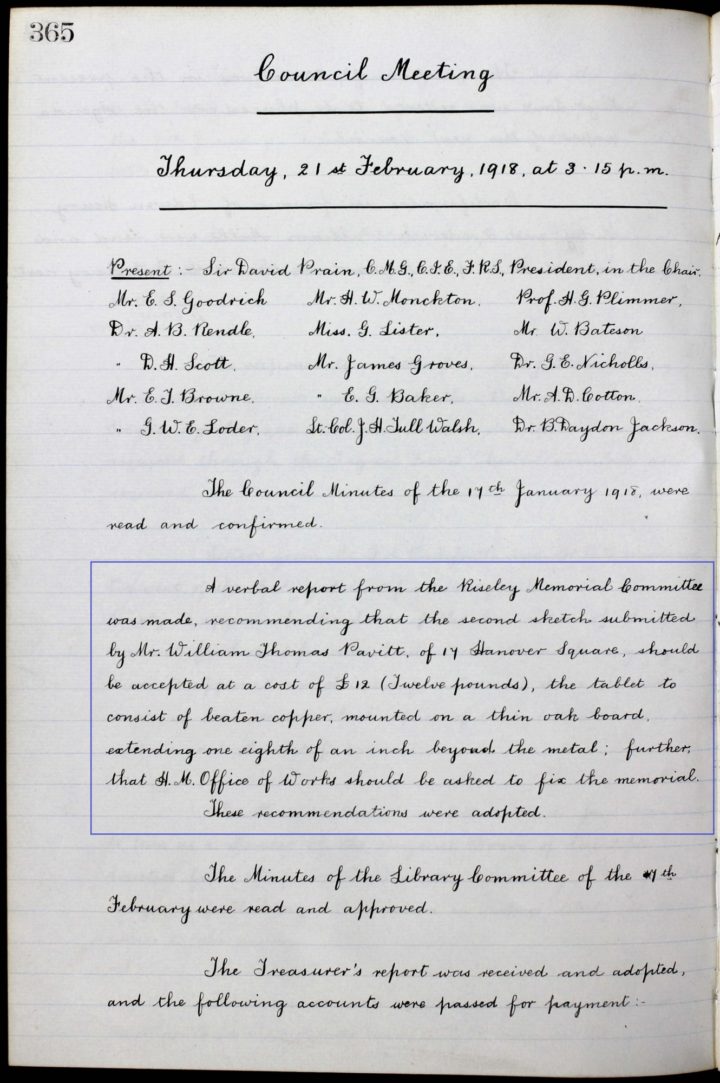 365
Council Meeting
Thursday, 21st February, 1918, at 3·15 p.m.
Present :- Sir David Prain, C.M.G., C.I.E., F.R.S., President, in the Chair.
Mr. E. S. Goodrich Mr. H. W. Monckton. Prof. H. G. Plimmer,
Dr. A. B. Rendle, Miss. G. Lister, Mr. W. Bateson
" D. H. Scott, Mr. James Groves, Dr. G. E. Nicholls,
Mr. E. T. Browne, " E. G. Baker, Mr. A. D. Cotton,
" G. W. E. Loder, Lt. Col. J. H. Tull Walsh, Dr. B. Daydon Jackson.
The Council Minutes of the 17th January 1918, were
read and confirmed.
A verbal report from the Riseley Memorial Committee
was made, recommending that the second sketch submitted
by Mr. William Thomas Pavitt, of 17 Hanover Square, should
be accepted at a cost of £12 (Twelve pounds), the tablet to
consist of beaten copper, mounted on a thin oak board,
extending one eighth of an inch beyond the metal; further,
that H. M. Office of Works should be asked to fix the memorial.
These recommendations were adopted.
The Minutes of the Library Committee of the 7th
February were read and approved.
The Treasurer's report was received and adopted,
and the following accounts were passed for payment:-